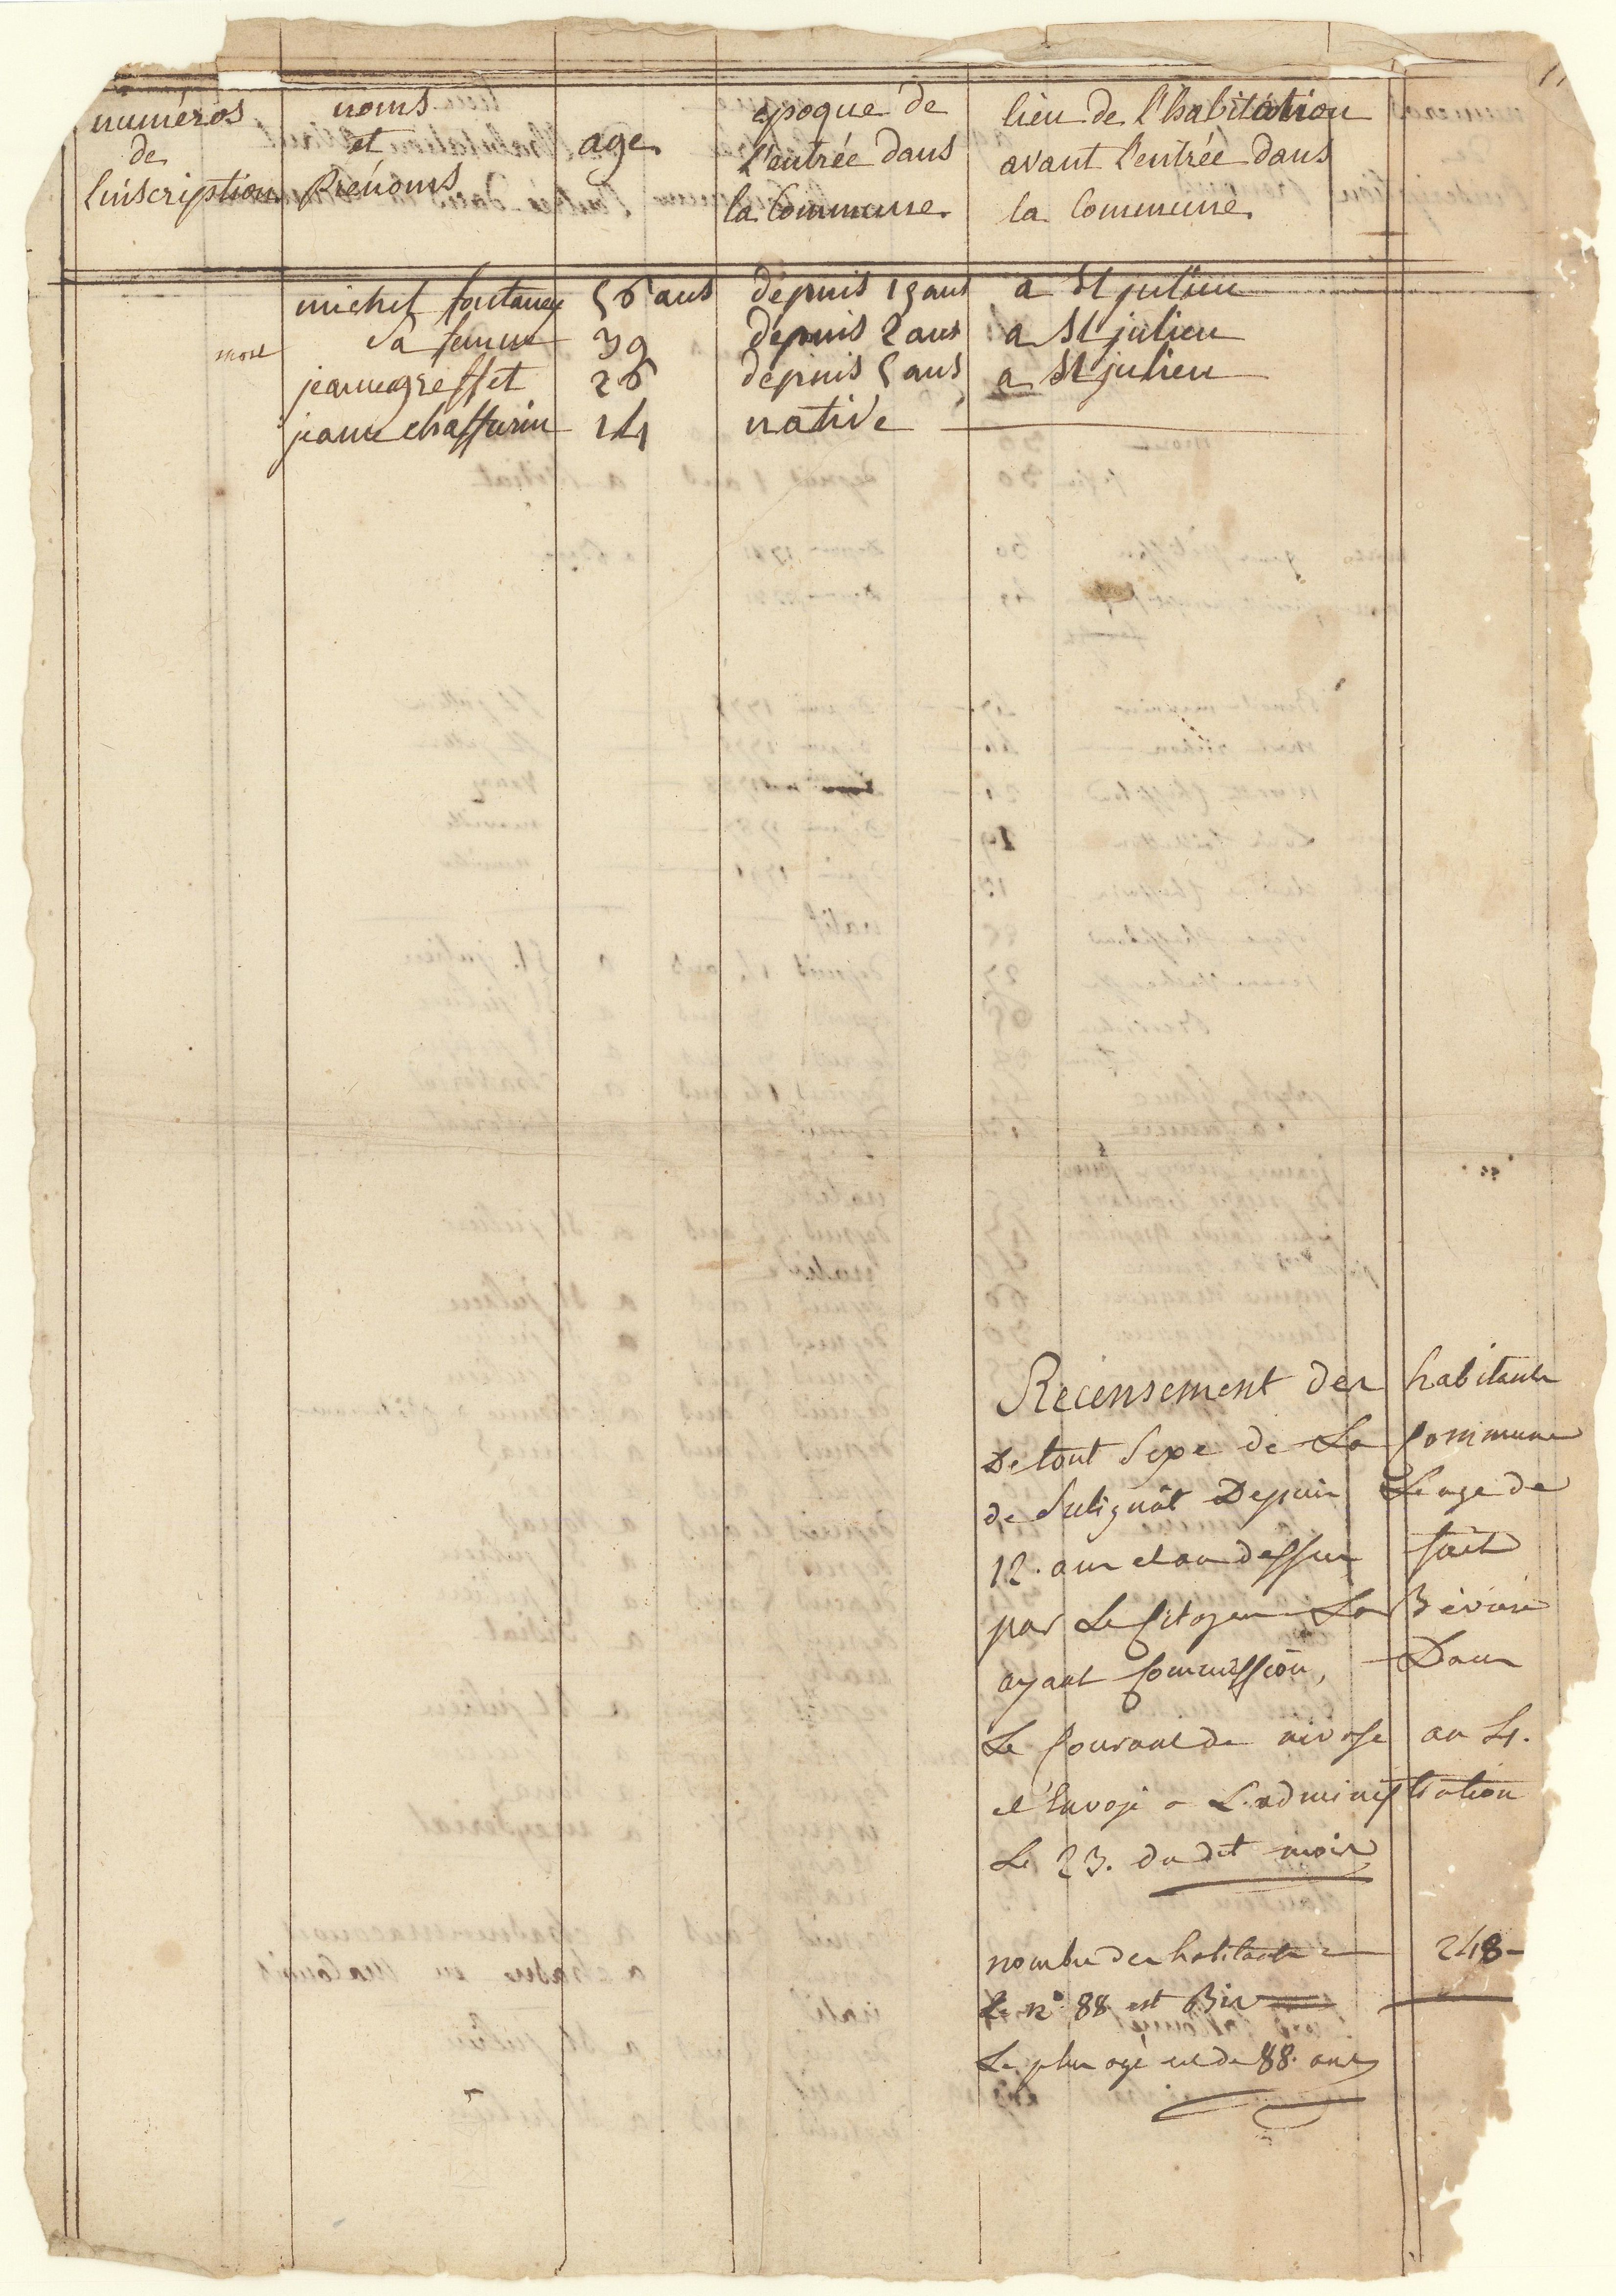 numéros de l'inscription
noms et prénoms
age
epoque de l'entrée dans la Commune
lieu de l'habitation avant l'entrée dans la Commune
michel fontaney 56 ans depuis 15 ans a St julien
mort sa femme 39 depuis 2 ans a St julien
jeanne greffet 26 depuis 5 ans a St julien
jeanne chaffurin 14 native
Recensement des habitants
De tout Sexe de La Commune
de Suligniat Depuis L'age de
12. ans et au dessus fait
par Le Citoyen La Bévière
ayant Commission, Dans
Le Courant de nivose an 4.
et Envoyé a L'administration
Le 23. du dit mois
nombre des habitants 248
Le n° 88 est Bis
Le plus agé est de 88. ans